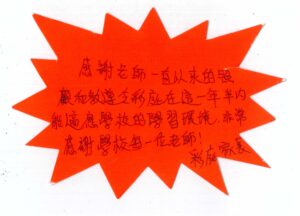 感謝老師一直以來的照
顧和教導令彩庭在這一年半內
能適應學校的學習環境,非常
感謝學校每一位老師!
彩庭家長